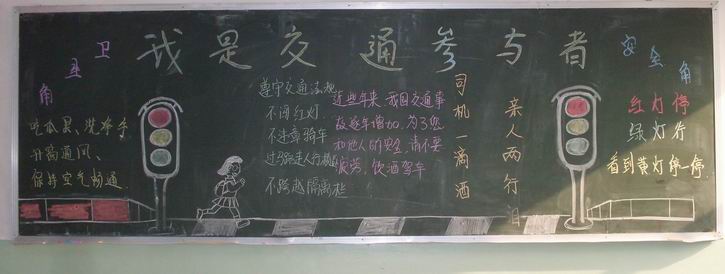 我是交通参与者
卫生角
吃瓜果、洗净手
开窗通风、
保持空气畅通
遵守交通法规
不闯红灯
不违章骑车
过马路走人行横道
不跨越隔离栏
近些年来，我国交通事
故逐年增加，为了您
和他人的安全，请不要
疲劳、饮酒驾车
司机一滴酒
亲人两行泪
安全角
红灯停
绿灯行
看到黄灯停一停